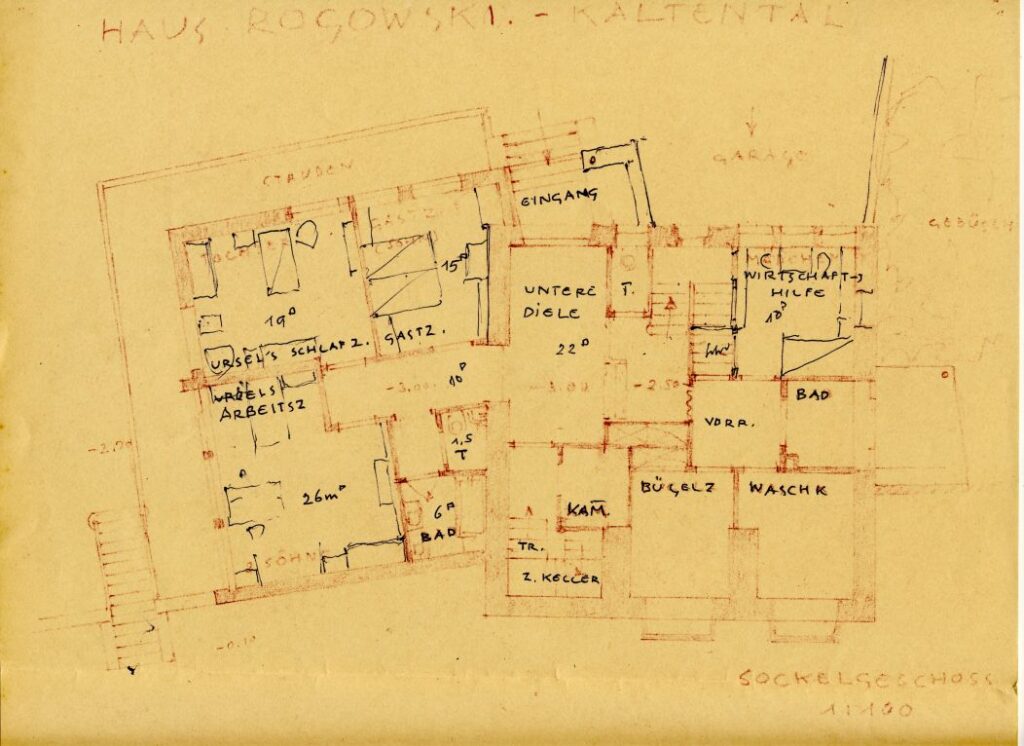 HAUS ROGOWSKI. - KALTENTAL
STAUDEN
GARAGE
EINGANG
GASTZ
15□
WIRTSCHAFT-
HILFE
10□
UNTERE
DIELE
22□
T.
WC
19□
URSEL'S SCHLAFZ.
GASTZ.
URSELS
ARBEITSZ
10□
-3.00
-3.00
-2.50
BAD
VORR.
1,5
T
26m□
6□
BAD
KAM.
BÜGELZ
WASCHK
TR.
Z. KELLER
2 SÖHNE
-0.10
SOCKELGESCHOSS
1:100